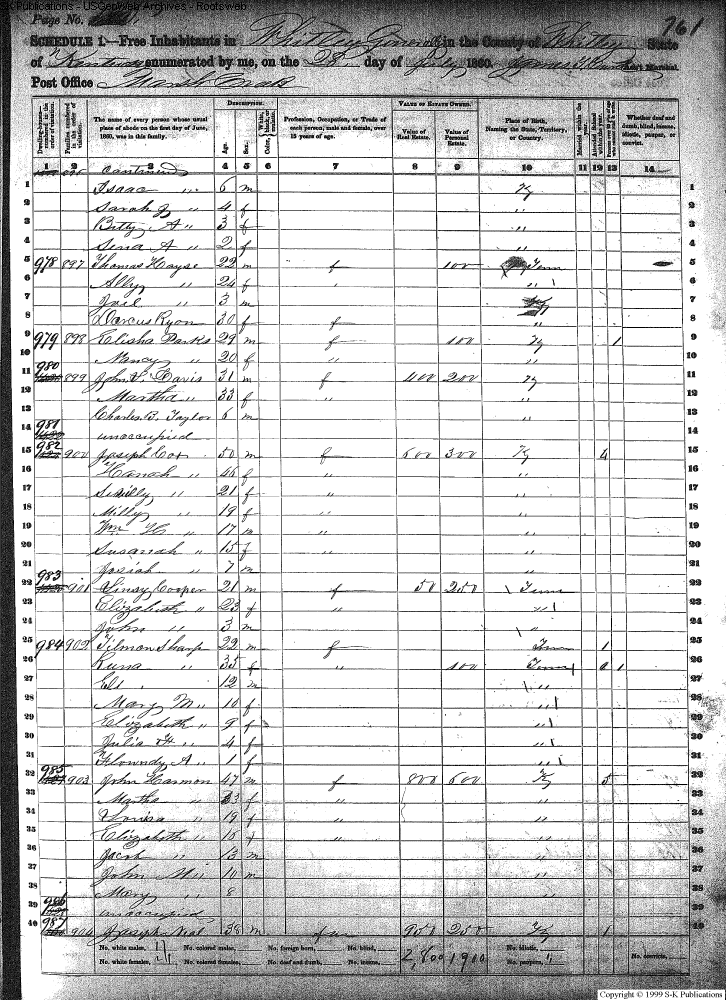 S-K Publications - USGenWeb Archives - Rootsweb
Page No.
961
SCHEDULE 1.—Free Inhabitants in Whitley General in the County of Whitley State
of Kentucky enumerated by me, on the 28 day of July 1860.
Post Office Marsh Creek
DESCRIPTION. VALUE OF ESTATE OWNED.
The name of every person whose usual place of abode on the first day of June, 1860, was in this family.
Age. Sex. Color,
Profession, Occupation, or Trade of each person, male and female, over 15 years of age.
Value of Real Estate. Value of Personal Estate.
Place of Birth, Naming the State, Territory, or Country.
Married within the year.
Whether deaf and dumb, blind, insane, idiotic, pauper, or convict.
1 2 3 4 5 6 7 8 9 10 11 12 13 14
continued
1 Isaac " 6 m Ky 1
2 Sarah J " 4 f " 2
3 Bitty A " 3 f " 3
4 Sena A " 2 f " 4
5 978 897 Thomas Hayse 22 m f 100 Tenn 5
6 Ally " 24 f " " 6
7 Joel " 3 m Ky 7
8 Darcus Ryon 30 f f " 8
9 979 898 Elisha Parks 29 m f 100 Ky 1 9
10 Nancy " 20 f " " 10
11 980 899 John V. Davis 31 m f 400 200 Ky 11
12 Martha " 33 f " 12
13 Charles B. Taylor 6 m " 13
14 981 unoccupied 14
15 982 900 Joseph Cox 50 m f 600 300 Ky 4 15
16 Hanah " 46 f " " 16
17 21 f " " 17
18 Milly " 19 f " " 18
19 Wm H " 17 m " " 19
20 Susanah " 15 f " 20
21 Josiah " 7 m " 21
22 983 901 Linsy Cooper 21 m f 50 250 Tenn 22
23 Elizabeth " 23 f " " 23
24 John " 3 m " 24
25 984 902 Tilmon Sharp 22 m f Tenn 1 25
26 35 f " 100 Tenn 1 26
27 Eli 12 m " 27
28 Mary M " 10 f " 28
29 Elizabeth " 9 f " 29
30 Julia " 4 f " 30
31 A " 1 f " 31
32 985 903 John Harmon 47 m f 800 600 Ky 5 32
33 Martha " 33 f " " 33
34 Louisa " 19 f " " 34
35 Elizabeth " 15 f " " 35
36 Jacob " 13 m " 36
37 John M " 10 m " 37
38 Mary " 8 " 38
39 986 unoccupied 39
40 987 904 Joseph Neal 38 m 950 250 Ky 1 40
No. white males, No. colored males, No. foreign born, No. blind, No. idiotic,
No. white females, No. colored females, No. deaf and dumb, No. insane, 2,800 1900 No. paupers, No. convicts,
Copyright © 1999 S-K Publications